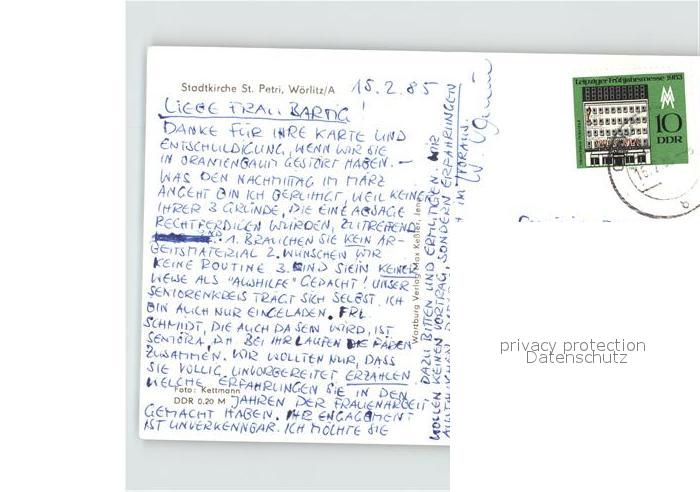 Stadtkirche St. Petri, Wörlitz/A
15.2.85
LIEBE FRAU BARTIG!
DANKE FÜR IHRE KARTE UND
ENTSCHULDIGUNG, WENN WIR SIE
IN ORANIENBAUM GESTÖRT HABEN. —
WAS DEN NACHMITTAG IM MÄRZ
ANGEHT BIN ICH BERUHIGT, WEIL KEINER
IHRER 3 GRÜNDE, DIE EINE ABSAGE
RECHTFERDIGEN WÜRDEN, ZUTREFFEND
SIND. 1. BRAUCHEN SIE KEIN AR-
BEITSMATERIAL 2. WÜNSCHEN WIR
KEINE ROUTINE 3. SIND SIE IN KEINER
WEISE ALS "AUSHILFE" GEDACHT! UNSER
SENIORENKREIS TRÄGT SICH SELBST. ICH
BIN AUCH NUR EINGELADEN. FRL.
SCHMIDT, DIE AUCH DA SEIN WIRD, IST
SENIORA, D.H. BEI IHR LAUFEN DIE FÄDEN
ZUSAMMEN. WIR WOLLTEN NUR, DASS
SIE VÖLLIG UNVORBEREITET ERZÄHLEN
WELCHE ERFAHRUNGEN SIE IN DEN
Foto: Kettmann
DDR 0,20 M
JAHREN DER FRAUENARBEIT
GEMACHT HABEN. IHR ENGAGEMENT
IST UNVERKENNBAR. ICH MÖCHTE SIE
Wartburg Verlag Max Keßler, Jena
DAZU BITTEN UND ERMUTIGEN. WIR
WOLLEN KEINEN VORTRAG, SONDERN ERFAHRUNGEN
+ IM VORAUS.
Leipziger Frühjahrsmesse 1985
10
DDR
privacy protection
Datenschutz